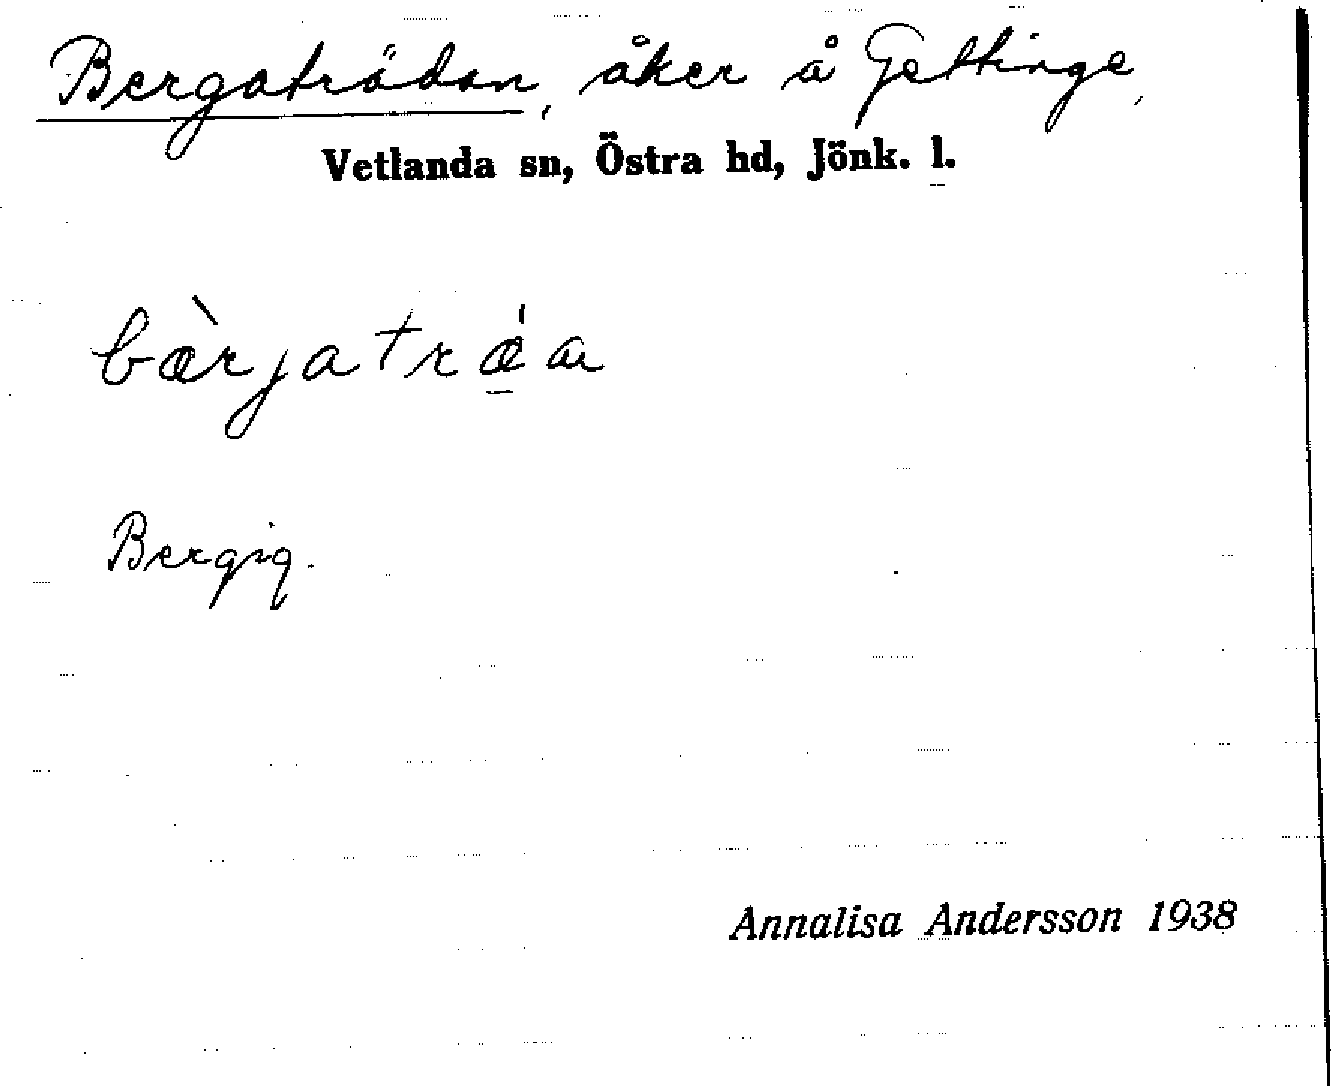 Bergaträdan, åker å Gettinge,
Vetlanda sn, Östra hd, Jönk. l.
bæ̀rjatrǽ̠ar
Bergig.
Annalisa Andersson 1938